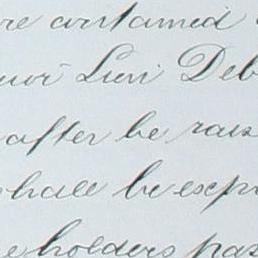 re contained
Lieu Deb
after be rais
shall be exp
e holders pas